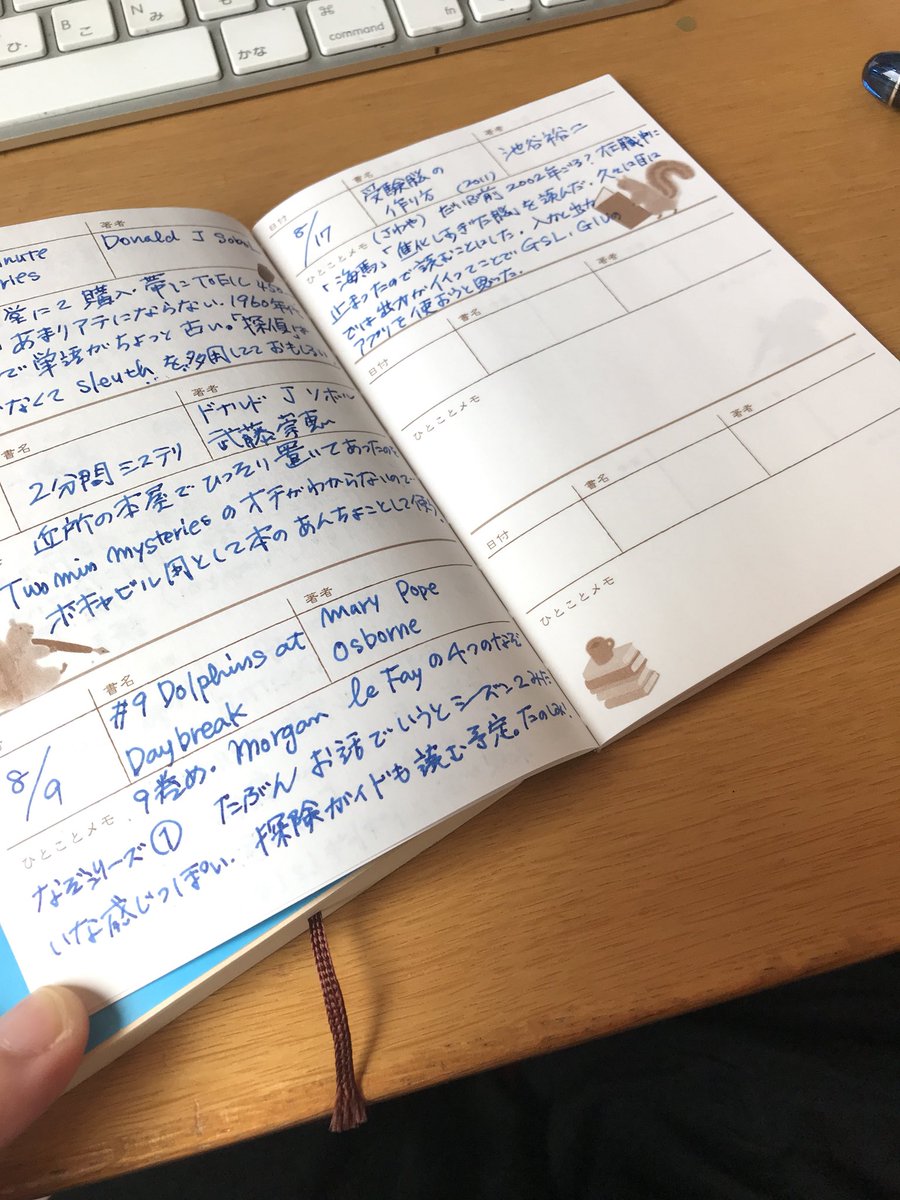 ひ
B
こ
N
み
M
も
かな
⌘
command
著者
inute
ries
Donald J Sobol
堂にて購入.帯にTOEIC 450
あまりアテにならない.1960年代
で単語がちょっと古い。「探偵」は
なくて sleuth を多用してておもしろい
書名
著者
2分間ミステリ
ドナルド J ソボル
武藤崇恵
近所の本屋でひっそり置いてあったのを
Two min mysteries のオチがわからないので
ボキャビル用として本のあんちょことして使う.
書名
著者
8/9
#9 Dolphins at
Daybreak
Mary Pope
Osborne
ひとことメモ
9巻め. Morgan le Fay の4つのなぞ
なぞシリーズ① たぶん お話でいうとシーズン2みた
いな感じっぽい. 探険ガイドも読む予定。たのしみ!
日付
書名
著者
8/17
受験脳の
作り方 (2011)
池谷裕二
ひとことメモ
(さわや) だいぶ前 2002年ごろ? 在職中に
「海馬」「進化しすぎた脳」を読んだ. 久々に目に
止まったので読むことにした. 入力と出力
では出力がイイってことで. GSL, GIUの
アプリを使おうと思った.
日付
書名
著者
ひとことメモ
日付
書名
著者
ひとことメモ